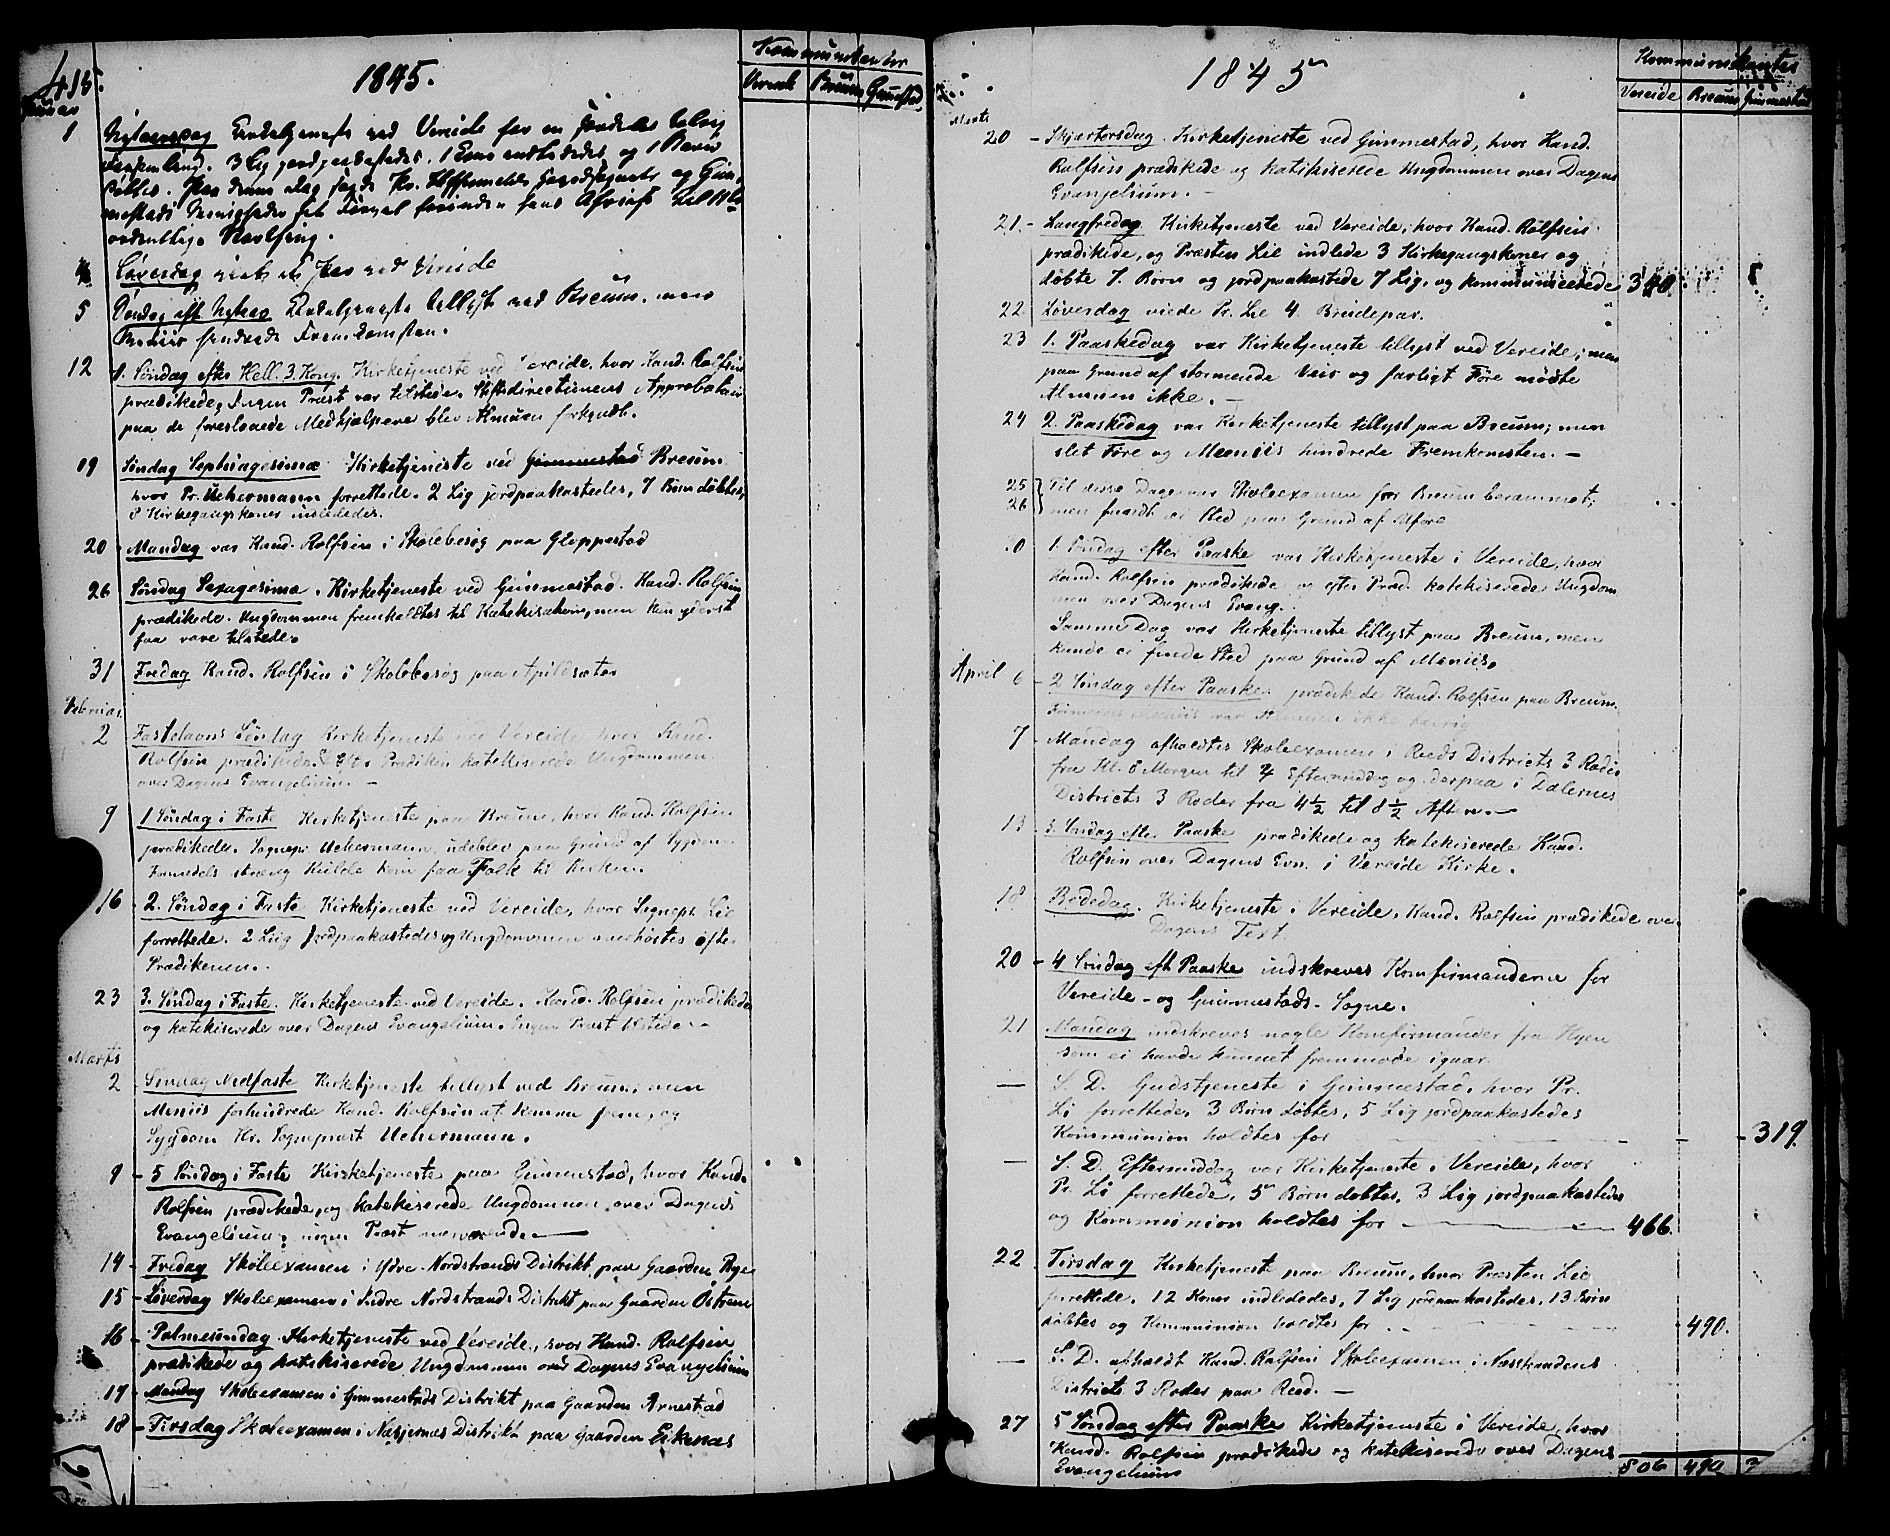 415.
1845.
Kommunikanter
Vereide Breum Gimmestad
Januar
1 Nytaarsdag
3 Lig jordpaakastedes. 1 Kone indlededes og 1 Barn
døbtes. Paa denne Dag
4 Løverdag ved Vereide
5 Søndag eft. Nytaar tillyst ved Breum, men
Meniis hindrede Fremkomsten.
12 1. Søndag efter Hell. 3. Kong. Kirketjeneste ved Vereide, hvor Kand. Rolfsen
prædikede. Ingen Præst var tilstede. Stiftsdirectionens Approbation
paa de foreslaaede Medhjælpere blev Almuen forkyndt.
19 Søndag Septuagesima Kirketjeneste ved Gimmestad Breum
hvor Pr. Uchermann forrettede. 2 Lig jordpaakastedes, 7 Børn døbtes,
Kirkegangskoner indlededes.
20 Mandag var Kand. Rolfsen i Skolebesøg paa Gloppestad
26 Søndag Sexagesima. Kirketjeneste ved Gimmestad. Kand. Rolfsen
prædikede. Ungdommen fremkaldtes til Katekisation, men kun yderst
faa vare tilstede.
31 Fredag Kand. Rolfsen i Skolebesøg paa Apildsæter
Februar
2 Fastelavns Søndag Kirketjeneste ved Vereide hvor Kand.
Rolfsen prædikede. Efter Prædiken katekiserede Ungdommen
over Dagens Evangelium. —
9 1 Søndag i Faste Kirketjeneste paa Breum, hvor Kand. Rolfsen
prædikede. Sognepr. Uchermann udeblev paa Grund af Sygdom.
Formedels stræng Kulde kom faa Folk til Kirken.
16 2. Søndag i Faste Kirketjeneste ved Vereide, hvor Sognepr. Lie
forrettede. 2 Liig jordpaakastedes og Ungdommen overhørtes efter
Prædikenen.
23 3. Søndag i Faste. Kirketjeneste ved Vereide. Kand. Rolfsen prædikede
og katekiserede over Dagens Evangelium. Ingen Præst tilstede. —
Marts
2 Søndag Midfaste Kirketjeneste tillyst ved Breum, men
Meniis forhindrede Kand. Rolfsen at komme frem, og
Sygdom Hr. Sognepræst Uchermann.
9 - 5 Søndag i Faste Kirketjeneste paa Gimmestad, hvor Kand.
Rolfsen prædikede, og katekiserede Ungdommen over Dagens
Evangelium; ingen Præst nærværende. —
14 - Fredag Skoleexamen i Ydre Nordstrands Distrikt paa Gaarden Rye
15 - Løverdag Skoleexamen i Indre Nordstrands Distrikt paa Gaarden
16 - Palmesøndag Kirketjeneste ved Vereide, hvor Kand. Rolfsen
prædikede og katekiserede Ungdommen over Dagens Evangelium
17 - Mandag Skoleexamen i Gimmestads Distrikt paa Gaarden Arnestad
18 - Tirsdag Skoleexamen i Distrikt paa Gaarden Eikenæs
1845
Kommunikanter
Vereide Breum Gimmestad
Marts
20 - Skjærtorsdag. Kirketjeneste ved Gimmestad, hvor Kand.
Rolfsen prædikede og katikiserede Ungdommen over Dagens
Evangelium. —
21. - Langfredag Kirketjeneste ved Vereide; hvor Kand. Rolfsen
prædikede, og Præsten Lie indlede 3 Kirkegangskoner og
døbte 7. Børn og jordpaakastede 7 Lig, og kommunicerede 340.
22 Løverdag viede Pr. Lie 4 Brudepar.
23 1. Paaskedag var Kirketjeneste tillyst ved Vereide; men
paa Grund af stormende Veir og farligt Føre mødte
Almuen ikke. —
24 2. Paaskedag var Kirketjeneste tillyst paa Breum; men
slet Føre og Meniis hindrede Fremkomsten. —
25 Til disse Dage var Skoleexamen for Breum berammet;
26 men fandt ei Sted paa Grund af Uføre
30 1. Søndag efter Paaske var Kirketjeneste i Vereide, hvor
Kand. Rolfsen prædikede og efter Præd. katekiserede Ungdom
men over Dagens Evang.
Samme Dag var Kirketjeneste tillyst paa Breum, men
kunde ei finde Sted paa Grund af Meniis.
April 6 - 2 Søndag efter Paaske prædikede Kand. Rolfsen paa Breum.
Formedels Meniis var Almuen ikke talrig
7 - Mandag afholdtes Skoleexamen i Reeds Districts 3 Roder
fra Kl. 8 Morgen til 4 Eftermiddag og derpaa i Dalernes
Districts 3 Roder fra 4½ til 8½ Aften. —
13 - 3. Søndag efter Paaske prædikede og katekiserede Kand.
Rolfsen over Dagens Evn. i Vereide Kirke.
18 Bededag. Kirketjeneste i Vereide. Kand. Rolfsen prædikede over
Dagens Text.
20 - 4 Søndag eft Paaske indskreves Konfirmanderne for
Vereide - og Gimmestads - Sogne.
21 Mandag indskreves nogle Konfirmander fra Hyen
som ei havde kunnet fremmøde igaar.
— S. D. Gudstjeneste i Gimmestad, hvor Pr.
Li forrettede. 3 Børn døbtes, 5 Lig jordpaakastedes
Kommunion holdtes for — 319.
— S. D. Eftermiddag var Kirketjeneste i Vereide, hvor
Pr. Li forrettede. 5 Børn døbtes, 3 Lig jordpaakastedes
og Kommunion holdtes for — 466.
22 Tirsdag Kirketjeneste paa Breum, hvor Præsten Lie
forrettede. 12 Koner indlededes, 7 Lig jordpaakastedes, 13 Børn
døbtes og Kommunion holdtes for 490.
— S. D. afholdt Kand. Rolfsen Skoleexamen i
Districts 3 Roder paa Reed. —
27 5 Søndag efter Paaske Kirketjeneste i Vereide, hvor
Kand. Rolfsen prædikede og katekiserede over Dagens
Evangelium
806 490 3